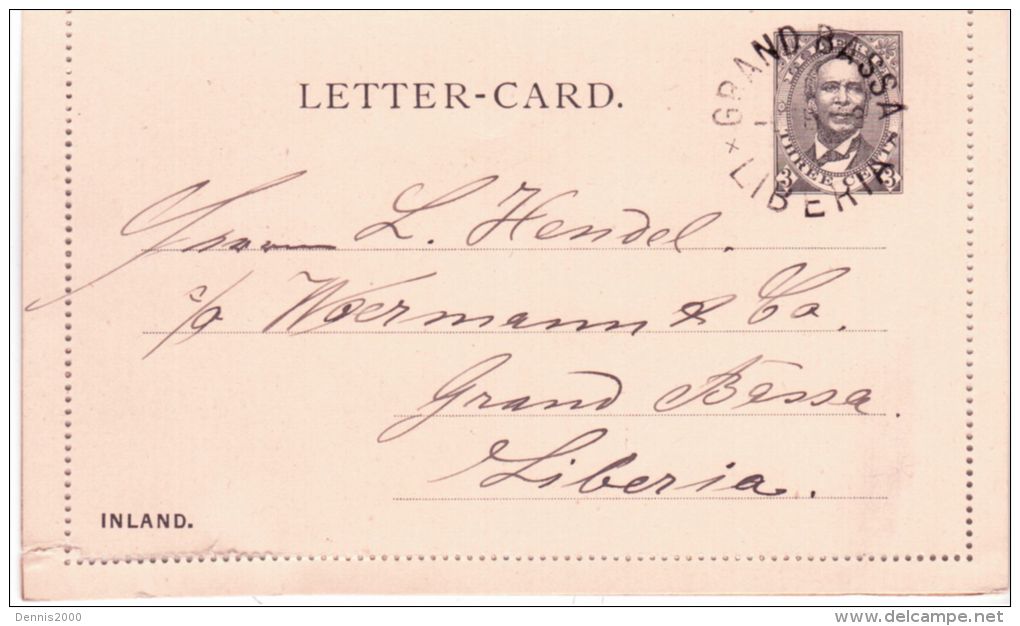 LETTER-CARD.
GRAND BASSA
LIBERIA
THREE CENTS
3 3
Herrn L. Hendel.
c/o Woermann & Co.
Grand Bassa.
Liberia.
INLAND.
Dennis2000
www.delcampe.net